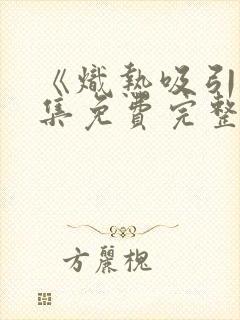 《熾熱吸引
集免費完整
方麗槐